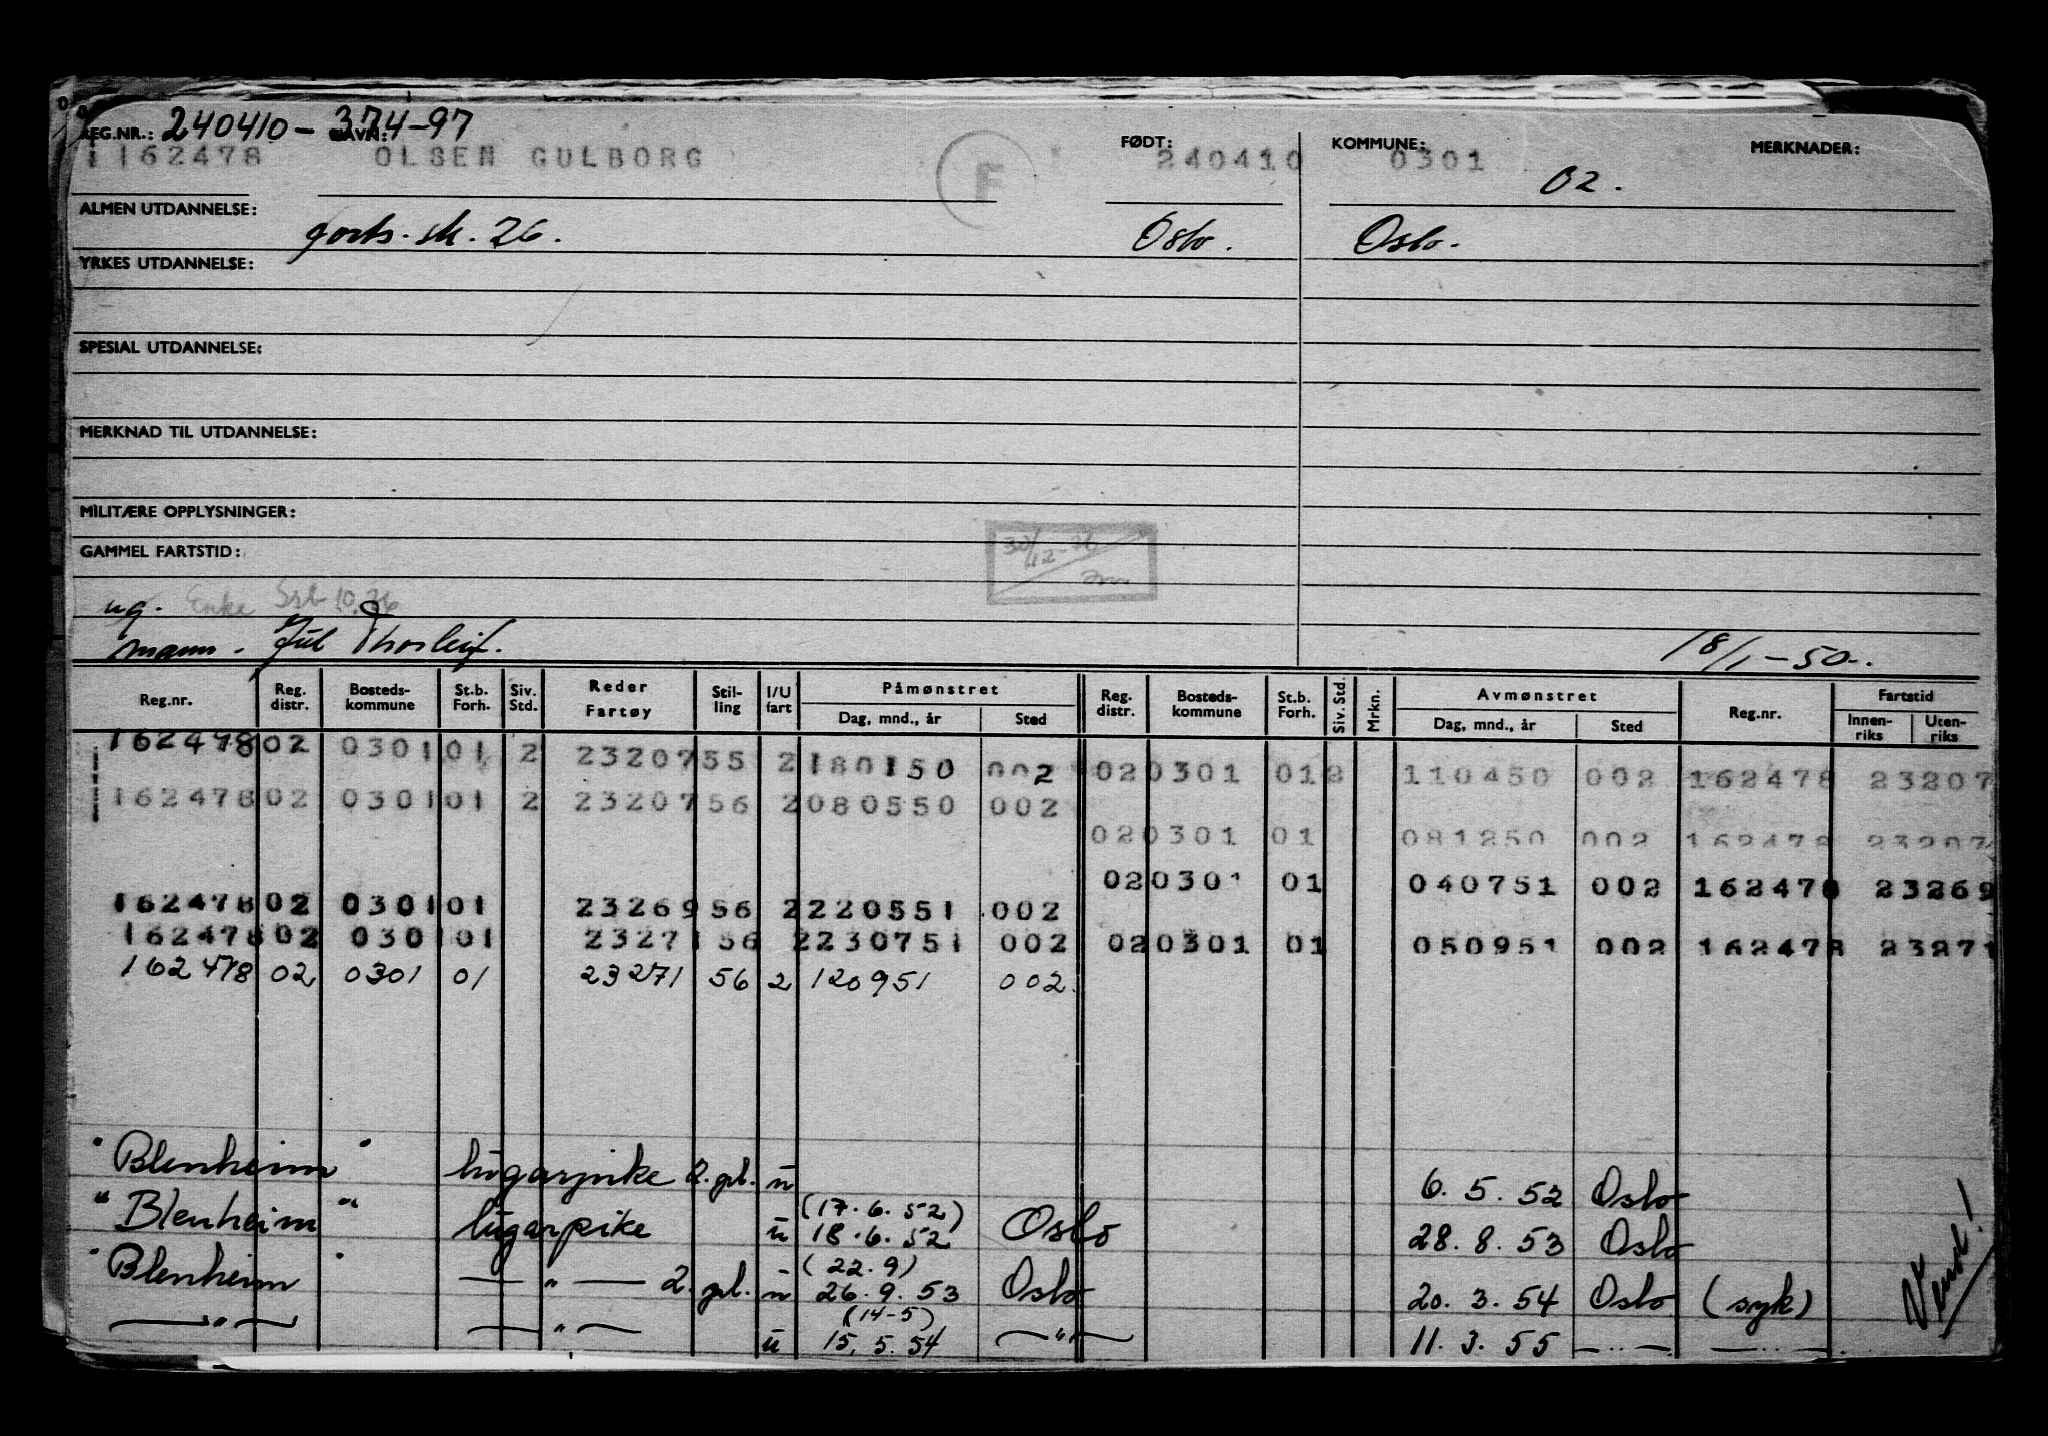 REG.NR.: 240410-374-97 NAVN: FØDT: KOMMUNE: MERKNADER:
162478 OLSEN GULBORG F 240410 0301
02.
ALMEN UTDANNELSE: sk. 26. Oslo. Oslo.
YRKES UTDANNELSE:
SPESIAL UTDANNELSE:
MERKNAD TIL UTDANNELSE:
MILITÆRE OPPLYSNINGER:
GAMMEL FARTSTID:
30/12-26
ug. Enke 10.26
mann. Jul Thorleif. 18/1-50.
Reg.nr. Reg. distr. Bosteds-kommune St.b. Forh. Siv. Std. Reder Fartøy Stil-ling I/U fart Påmønstret Dag, mnd., år Sted Reg. distr. Bosteds-kommune St.b. Forh. Siv. Std. Mrkn. Avmønstret Dag, mnd., år Sted Reg.nr. Fartstid Innen-riks Uten-riks
162478 02 0301 01 2 23207 55 2 180150 002 02 0301 01 2 110450 002 162478 23207
162478 02 0301 01 2 23207 56 2 080550 002
02 0301 01 081250 002 162478 23207
02 0301 01 040751 002 162478 23269
162478 02 0301 01 23269 56 2 220551 002
162478 02 0301 01 23271 56 2 230751 002 02 0301 01 050951 002 162478 23271
162478 02 0301 01 23271 56 2 120951 002.
"Blenheim" lugarpike 2. gbl. u 6. 5. 52 Oslo
(17.6.52)
"Blenheim" lugarpike u 18.6.52 Oslo 28. 8. 53 Oslo
(22.9)
"Blenheim" — " — 2. gbl. u 26.9.53 Oslo 20. 3. 54 Oslo (syk)
(14-5)
— " — — " — u 15.5.54 — " — 11. 3. 55 — " — — " —
Vend!